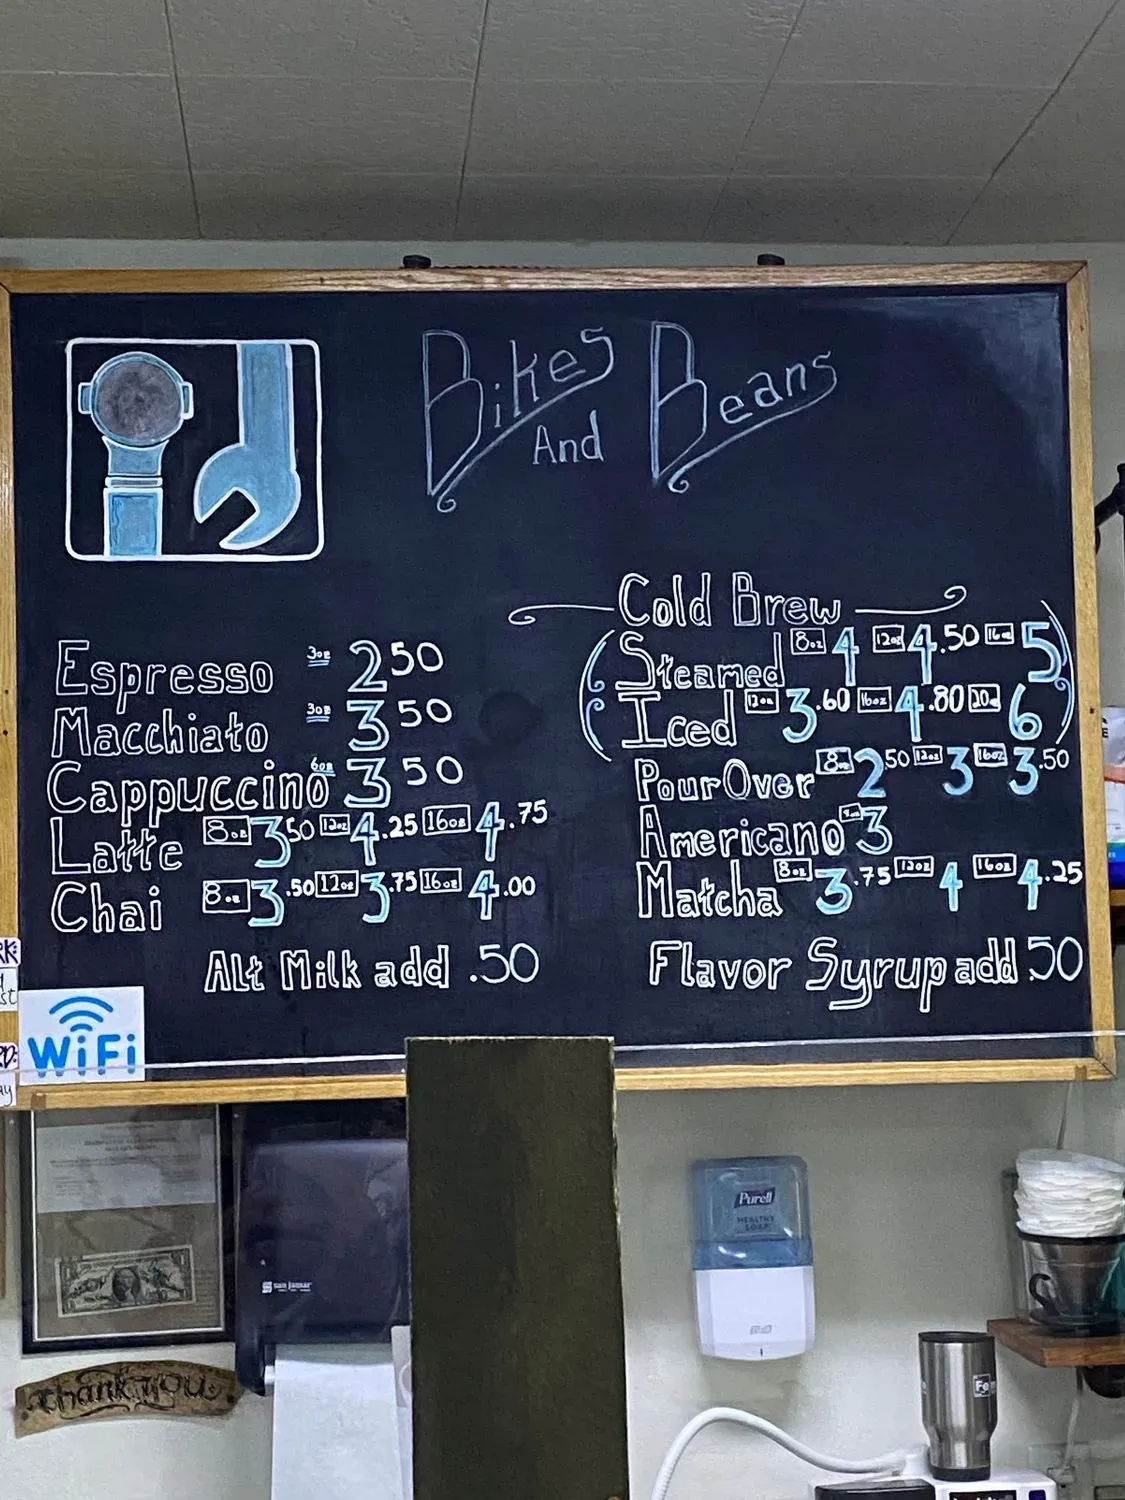 Bikes
And
Beans
Espresso 3oz 2 50
Macchiato 3oz 3 50
Cappuccino 6oz 3 50
Latte 8oz 3 50 12oz 4.25 16oz 4.75
Chai 8oz 3.50 12oz 3.75 16oz 4.00
Alt Milk add .50
Cold Brew
Steamed 8oz 4 12oz 4.50 16oz 5
Iced 12oz 3.60 16oz 4.80 20oz 6
PourOver 8oz 2 50 12oz 3 16oz 3.50
Americano 8oz 3
Matcha 8oz 3.75 12oz 4 16oz 4.25
Flavor Syrup add .50
RK:
st
RD:
ay
WiFi
san jamar
Purell
HEALTHY
SOAP
thank you
Fe